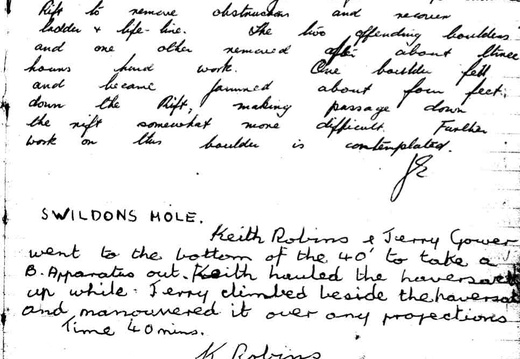 Rift to remove obstructions and recover
ladder & life-line. The two offending boulders
and one other removed after about three
hours hard work. One boulder fell
and became jammed about four feet
down the Rift, making passage down
the rift somewhat more difficult. Further
work on this boulder is contemplated.
SWILDONS HOLE.
Keith Robins & Jerry Gower
went to the bottom of the 40' to take a
B. Apparatus out. Keith hauled the haversack
up while Jerry climbed beside the haversa
and manouvered it over any projections
Time 40 mins.
K Robins